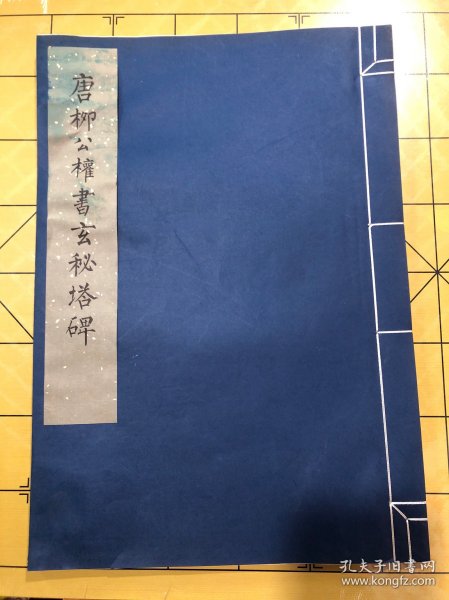 唐柳公權書玄秘塔碑
孔夫子旧書网
www.kongfz.com